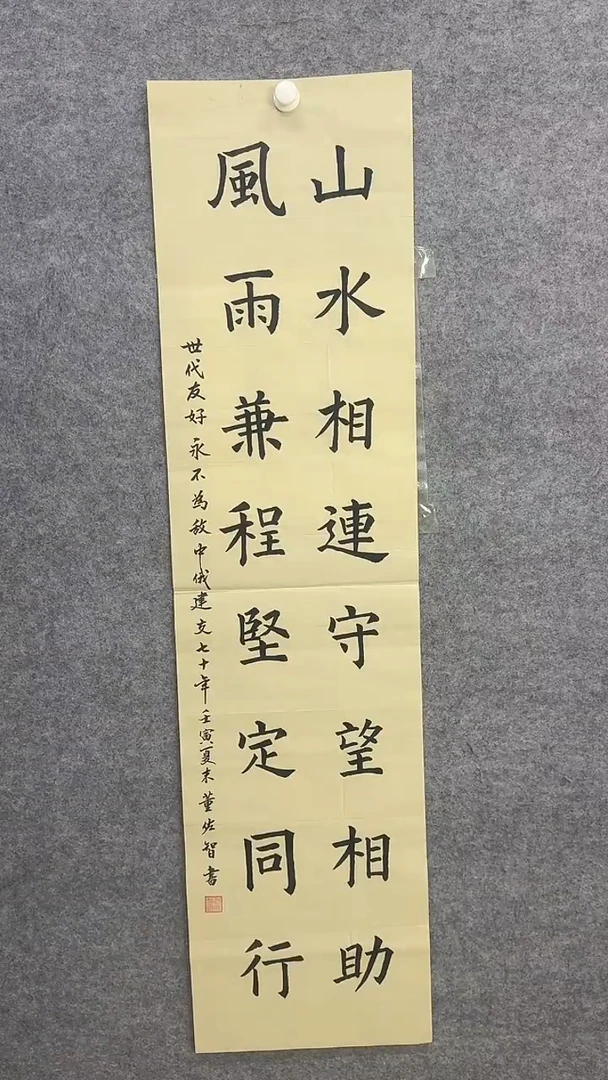 山水相連守望相助
風雨兼程堅定同行
世代友好永不為敌中俄建交七十年壬寅夏末董佐智書